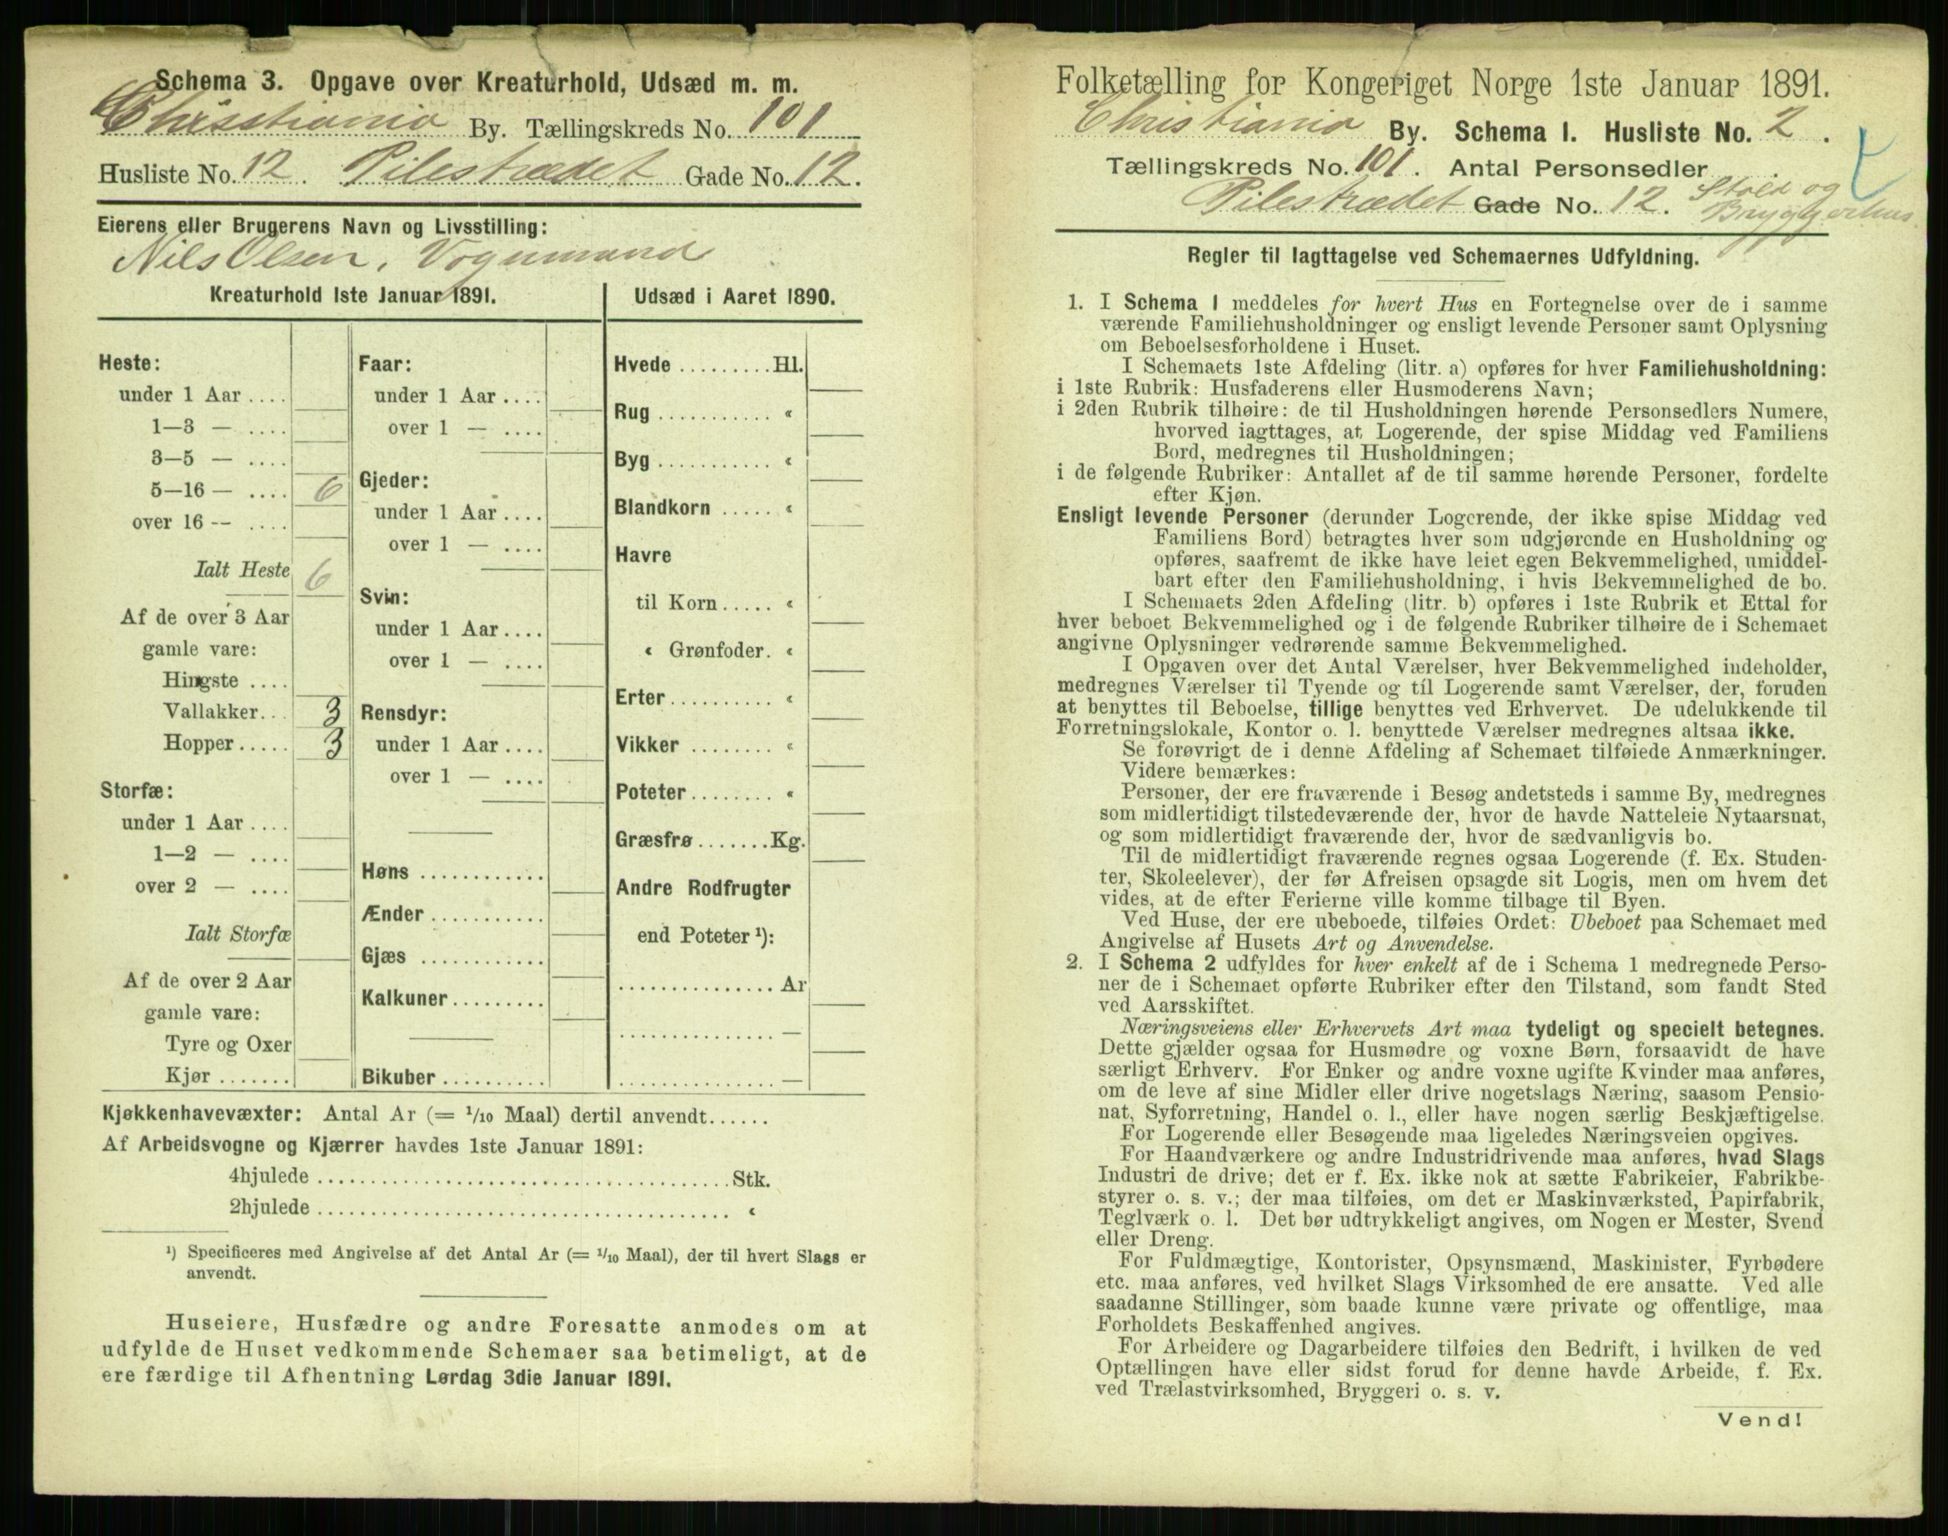 Schema 3. Opgave over Kreaturhold, Udsæd m. m.
Christiania By. Tællingskreds No. 101
Husliste No. 12. Pilestrædet Gade No. 12.
Eierens eller Brugerens Navn og Livsstilling:
Nils Olsen, Vognmand
Kreaturhold 1ste Januar 1891.
Heste:
under 1 Aar ....
1—3 — ....
3—5 — ....
5—16 — .... 6
over 16 -- ....
Ialt Heste 6
Af de over 3 Aar
gamle vare:
Hingste ....
Vallakker... 3
Hopper..... 3
Storfæ:
under 1 Aar ....
1—2 — ....
over 2 — ....
Ialt Storfæ
Af de over 2 Aar
gamle vare:
Tyre og Oxer
Kjør .......
Faar:
under 1 Aar ....
over 1 — ....
Gjeder:
under 1 Aar ....
over 1 — ....
Svin:
under 1 Aar ....
over 1 — ....
Rensdyr:
under 1 Aar ....
over 1 — ....
Høns ............
Ænder ...........
Gjæs ............
Kalkuner.........
Bikuber ..........
Udsæd i Aaret 1890.
Hvede .........Hl.
Rug ........... «
Byg ........... «
Blandkorn ..... «
Havre
til Korn..... «
« Grønfoder. «
Erter.......... «
Vikker ........ «
Poteter........ «
Græsfrø .......Kg.
Andre Rodfrugter
end Poteter ¹):
............... Ar
............... —
............... —
Kjøkkenhavevæxter: Antal Ar (= 1/10 Maal) dertil anvendt......
Af Arbeidsvogne og Kjærrer havdes 1ste Januar 1891:
4hjulede ........................................Stk.
2hjulede ........................................ «
¹) Specificeres med Angivelse af det Antal Ar (= 1/10 Maal), der til hvert Slags er
anvendt.
Huseiere, Husfædre og andre Foresatte anmodes om at
udfylde de Huset vedkommende Schemaer saa betimeligt, at de
ere færdige til Afhentning Lørdag 3die Januar 1891.
Folketælling for Kongeriget Norge 1ste Januar 1891.
Christiania By. Schema 1. Husliste No. 2.
Tællingskreds No. 101. Antal Personsedler .
Pilestrædet Gade No. 12. Stald og
Bryggerhus
Regler til Iagttagelse ved Schemaernes Udfyldning.
1. I Schema 1 meddeles for hvert Hus en Fortegnelse over de i samme
værende Familiehusholdninger og ensligt levende Personer samt Oplysning
om Beboelsesforholdene i Huset.
I Schemaets 1ste Afdeling (litr. a) opføres for hver Familiehusholdning:
i 1ste Rubrik: Husfaderens eller Husmoderens Navn;
i 2den Rubrik tilhøire: de til Husholdningen hørende Personsedlers Numere,
hvorved iagttages, at Logerende, der spise Middag ved Familiens
Bord, medregnes til Husholdningen;
i de følgende Rubriker: Antallet af de til samme hørende Personer, fordelte
efter Kjøn.
Ensligt levende Personer (derunder Logerende, der ikke spise Middag ved
Familiens Bord) betragtes hver som udgjørende en Husholdning og
opføres, saafremt de ikke have leiet egen Bekvemmelighed, umiddel-
bart efter den Familiehusholdning, i hvis Bekvemmelighed de bo.
I Schemaets 2den Afdeling (litr. b) opføres i 1ste Rubrik et Ettal for
hver beboet Bekvemmelighed og i de følgende Rubriker tilhøire de i Schemaet
angivne Oplysninger vedrørende samme Bekvemmelighed.
I Opgaven over det Antal Værelser, hver Bekvemmelighed indeholder,
medregnes Værelser til Tyende og til Logerende samt Værelser, der, foruden
at benyttes til Beboelse, tillige benyttes ved Erhvervet. De udelukkende til
Forretningslokale, Kontor o. l. benyttede Værelser medregnes altsaa ikke.
Se forøvrigt de i denne Afdeling af Schemaet tilføiede Anmærkninger.
Videre bemærkes:
Personer, der ere fraværende i Besøg andetsteds i samme By, medregnes
som midlertidigt tilstedeværende der, hvor de havde Natteleie Nytaarsnat,
og som midlertidigt fraværende der, hvor de sædvanligvis bo.
Til de midlertidigt fraværende regnes ogsaa Logerende (f. Ex. Studen-
ter, Skoleelever), der før Afreisen opsagde sit Logis, men om hvem det
vides, at de efter Ferierne ville komme tilbage til Byen.
Ved Huse, der ere ubeboede, tilføies Ordet: Ubeboet paa Schemaet med
Angivelse af Husets Art og Anvendelse.
2. I Schema 2 udfyldes for hver enkelt af de i Schema 1 medregnede Perso-
ner de i Schemaet opførte Rubriker efter den Tilstand, som fandt Sted
ved Aarsskiftet.
Næringsveiens eller Erhvervets Art maa tydeligt og specielt betegnes.
Dette gjælder ogsaa for Husmødre og voxne Børn, forsaavidt de have
særligt Erhverv. For Enker og andre voxne ugifte Kvinder maa anføres,
om de leve af sine Midler eller drive nogetslags Næring, saasom Pensio-
nat, Syforretning, Handel o. l., eller have nogen særlig Beskjæftigelse.
For Logerende eller Besøgende maa ligeledes Næringsveien opgives.
For Haandværkere og andre Industridrivende maa anføres, hvad Slags
Industri de drive; det er f. Ex. ikke nok at sætte Fabrikeier, Fabrikbe-
styrer o. s. v.; der maa tilføies, om det er Maskinværksted, Papirfabrik,
Teglværk o. l. Det bør udtrykkeligt angives, om Nogen er Mester, Svend
eller Dreng.
For Fuldmægtige, Kontorister, Opsynsmænd, Maskinister, Fyrbødere
etc. maa anføres, ved hvilket Slags Virksomhed de ere ansatte. Ved alle
saadanne Stillinger, som baade kunne være private og offentlige, maa
Forholdets Beskaffenhed angives.
For Arbeidere og Dagarbeidere tilføies den Bedrift, i hvilken de ved
Optællingen have eller sidst forud for denne havde Arbeide, f. Ex.
ved Trælastvirksomhed, Bryggeri o. s. v.
Vend!